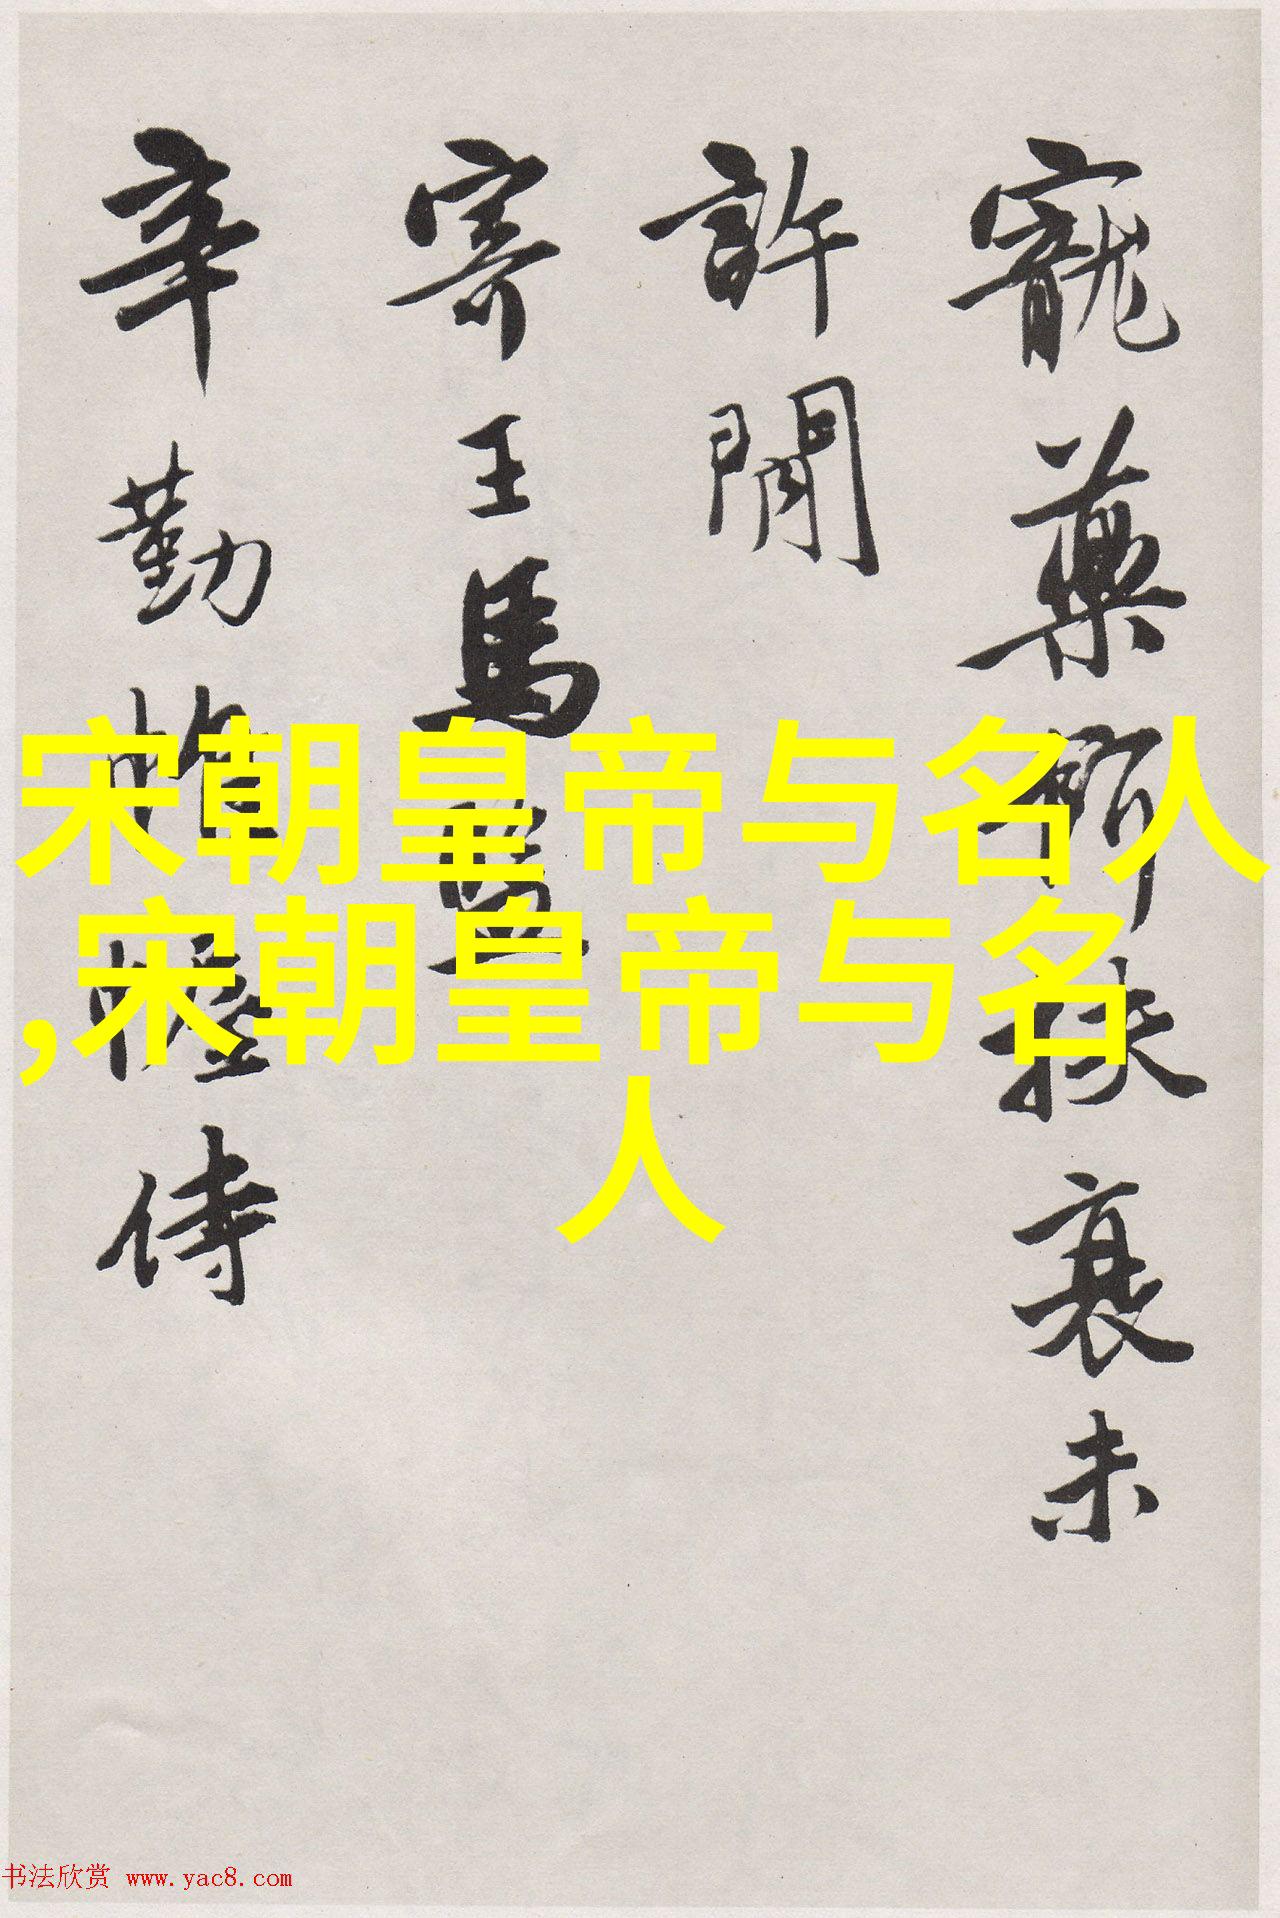 宋朝皇帝与名人
,宋朝皇帝与名
人
寵藥餌扶衰未
許閒
寄王馬監
辛勤帷幄侍
书法欣赏 www.yac8.com